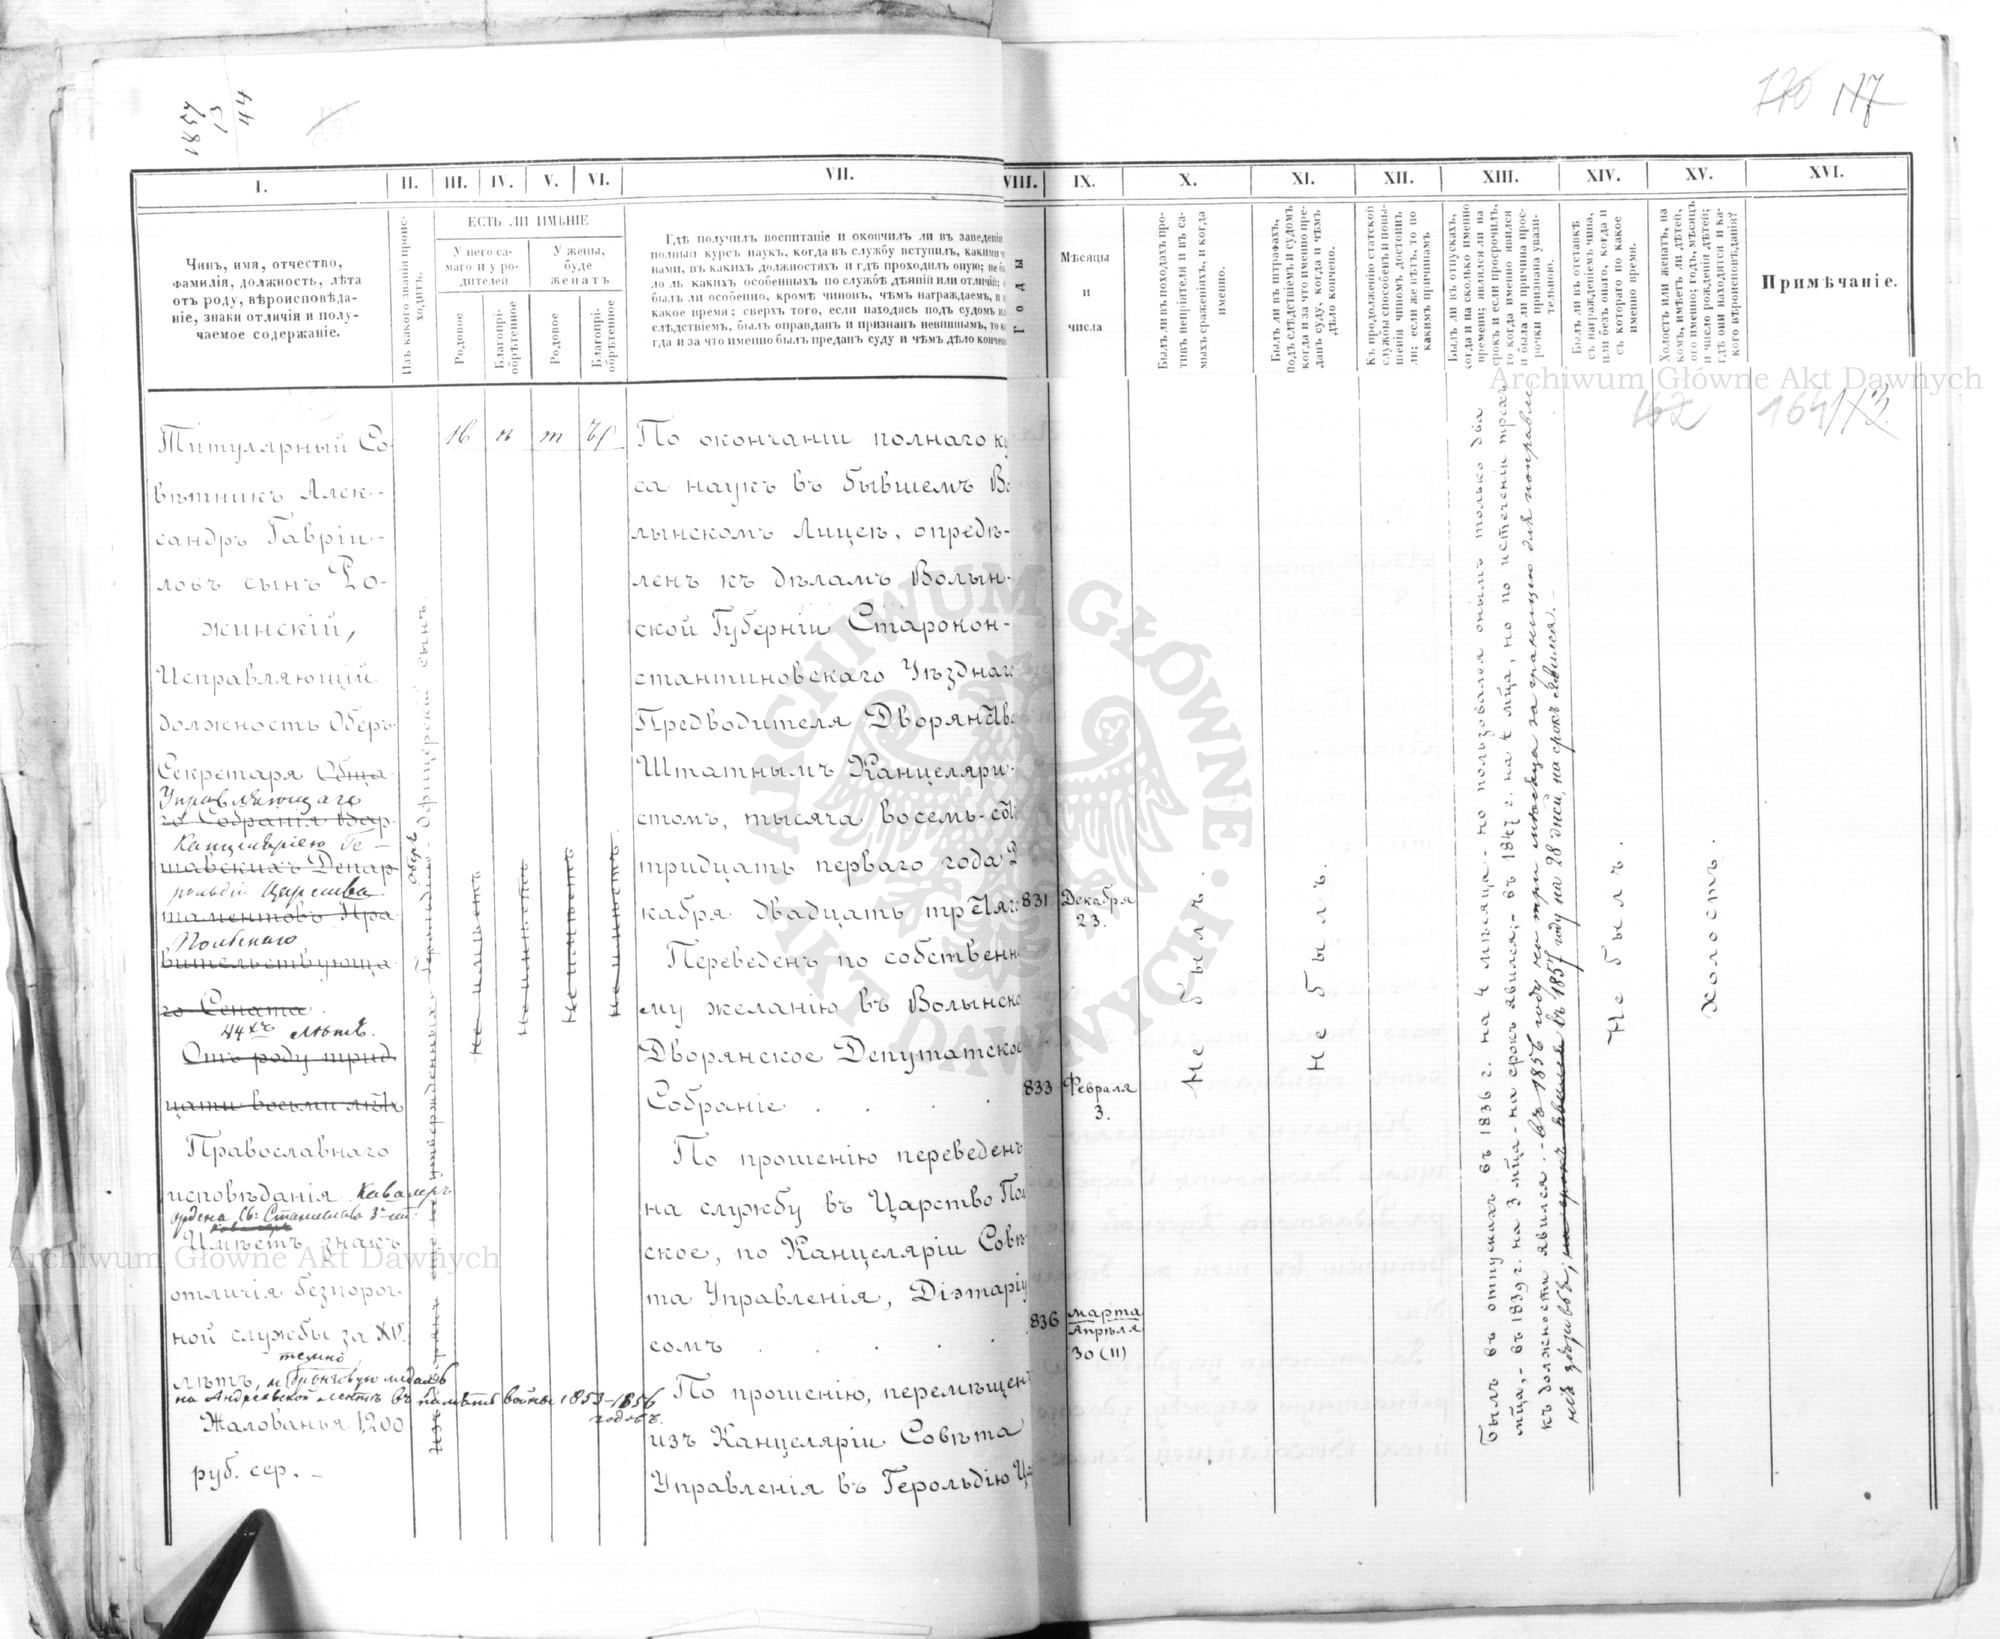 1857
13
44
170 117
I.
II.
III.
IV.
V.
VI.
VII.
VIII.
IX.
X.
XI.
XII.
XIII.
XIV.
XV.
XVI.
Чинъ, имя, отчество,
фамилія, должность, лѣта
отъ роду, вѣроисповѣда-
ніе, знаки отличія и полу-
чаемое содержаніе.
Изъ какого званія проис-
ходитъ.
ЕСТЬ ЛИ ИМѢНІЕ
У него са-
маго и у ро-
дителей
У жены,
буде
женатъ
Родовое
Благопрі-
обрѣтенное
Родовое
Благопрі-
обрѣтенное
Гдѣ получилъ воспитаніе и окончилъ ли въ заведеніи
полный курсъ наукъ, когда въ службу вступилъ, какими
нами, въ какихъ должностяхъ и гдѣ проходилъ оную; не
ло ль какихъ особенныхъ по службѣ дѣяній или отличій;
былъ ли особенно, кромѣ чиновъ, чѣмъ награждаемъ, и
какое время; сверхъ того, если находясь подъ судомъ
слѣдствіемъ, былъ оправданъ и признанъ невиннымъ, то
гда и за что именно былъ преданъ суду и чѣмъ дѣло кончено
Годы
Мѣсяцы
и
числа
Былъ ли въ походахъ про-
тивъ непріятеля и въ са-
мыхъ сраженіяхъ, и когда
именно.
Былъ ли въ штрафахъ,
подъ слѣдствіемъ и судомъ
когда и за что именно пре-
данъ суду, когда и чѣмъ
дѣло кончено.
Къ продолженію статской
службы способенъ и повы-
шенія чиномъ достоинъ
ли; если же нѣтъ, то по
какимъ причинамъ
Былъ ли въ отпускахъ,
когда и на сколько именно
времени; являлся ли на
срокъ и если просрочилъ,
то когда именно явился
и была ли причина прос-
рочки признана уважи-
тельною.
Былъ ли въ отставкѣ
съ награжденіемъ чина,
или безъ онаго, когда и
съ котораго по какое
именно время.
Холостъ или женатъ, на
комъ, имѣетъ ли дѣтей,
кого именно; годъ, мѣсяцъ
и число рожденія дѣтей;
гдѣ они находятся и ка-
кого вѣроисповѣданія?
Примѣчаніе.
Archiwum Główne Akt Dawnych
162 164 113
Титулярный Со-
вѣтникъ Алек-
сандръ Гавріи-
ловъ сынъ Ро-
жинскій,
Исправляющій
должность Оберъ
Секретаря Обща-
Управляющаго
го Собранія Вар-
Канцеляріею Ге-
шавскихъ Депар-
рольдіи Царства
таментовъ Пра-
Польскаго
вительствующа-
го Сената.
44хъ лѣтъ.
Отъ роду трид
цати восьми лѣтъ
Православнаго
исповѣданія. Кавалеръ
ордена Св: Станислава 3й ст:
кавалеръ
Имѣетъ знакъ
отличія безпороч-
ной службы за XV
темно
лѣтъ, и бронзовую медаль
на Андреевской лентѣ въ память войны 1853-1856
годовъ.
Жалованья 1,200
руб. сер. –
Оберъ-Офицерскій сынъ.
Изъ дворянъ не утвержденныхъ Герольдіею
Не имѣетъ
Не имѣетъ
Не имѣетъ
Не имѣетъ.
По окончаніи полнаго ку
са наукъ въ бывшемъ Во
лынскомъ Лицеѣ, опредѣ-
ленъ къ дѣламъ Волын-
ской Губерніи Старокон-
стантиновскаго Уѣзднаго
Предводителя Дворянства
Штатнымъ Канцеляри-
стомъ, тысяча восемь-сотъ
тридцать перваго года Де
кабря двадцать третьяго
831 Декабря
23.
Переведенъ по собственно
му желанію въ Волынско
Дворянское Депутатское
Собраніе . . . .
833 Февраля
3.
По прошенію переведенъ
на службу въ Царство Поль
ское, по Канцеляріи Совѣ
та Управленія, Діэтаріу
сомъ . . . .
836 Марта
Апрѣля
30 (11)
По прошенію, перемѣщенъ
изъ Канцеляріи Совѣта
Управленія въ Герольдію Ца
Не былъ.
Не былъ.
Былъ въ отпускахъ въ 1836 г. на 4 мѣсяца - но пользовался онымъ только два
мѣца,- въ 1839 г. на 3 мѣца - на срокъ явился;- въ 1847 г. на 4 мѣца, но по истеченіи трехъ
къ должности явился. - въ 1856 году на три мѣсяца за границу для поправле
нія здоровья; на срокъ явился въ 1857 году на 28 дней, на срокъ явился.
Не былъ.
Холостъ.
ARCHIWUM GŁÓWNE
AKT DAWNYCH
Archiwum Główne Akt Dawnych